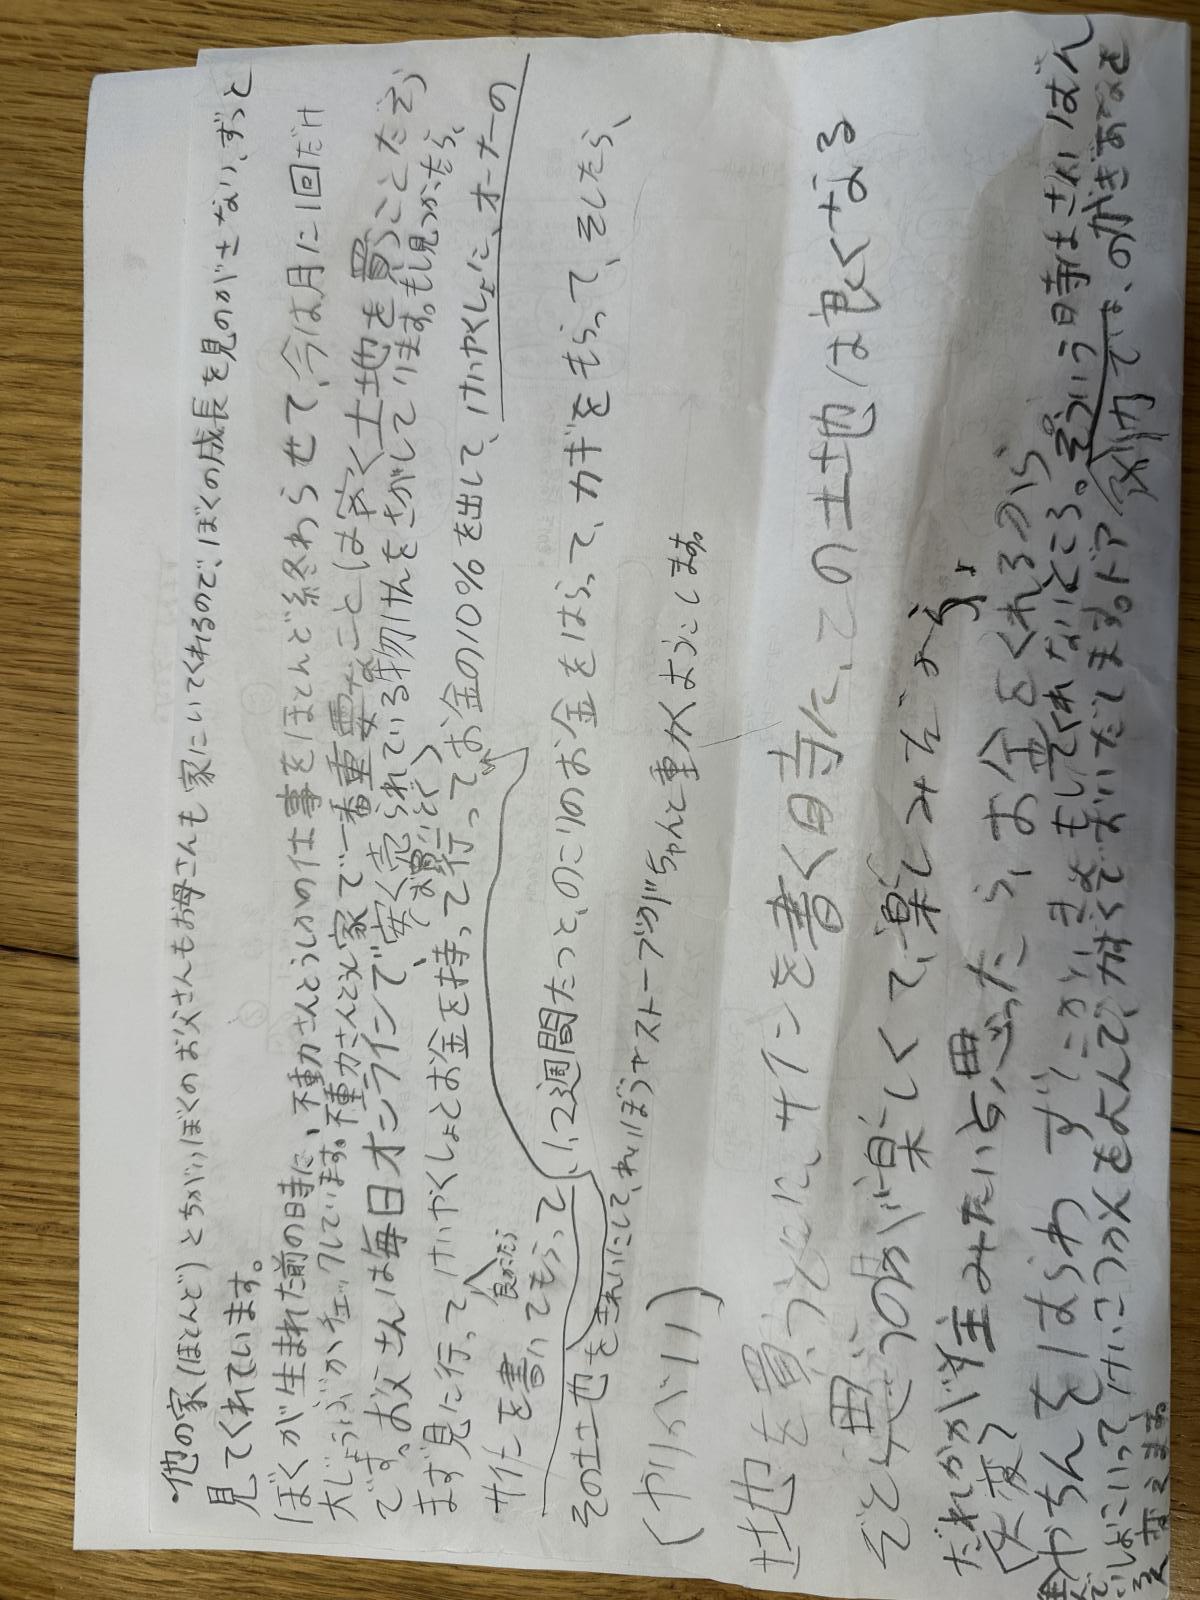 ・他の家(ほとんど)とちがい、ぼくのお父さんもお母さんも家にいてくれるので、ぼくの成長を見のがさない、ずっと
見てくれています。
ぼくが生まれた前の時に、不動力さんとうしかの仕事をほとんど終わらせて、今は月に1回だけ
大じょうぶかチェックしています。不動力さんとう家で一番重要なことは安く土地を買うことだぞ
です。お父さんは毎日オンラインで安く売られている物けんをさがしています。もし見つかったら、
(お買いとく)
まず見に行ってけいやくしょとお金を持って行ってお金の10%を出して、けいやくしょに、オーナーの
良かったら
サインを書いてもらって、1、2、3週間たつと、のこりのお金をはらって、カギをもらって、そしたら、
その土地をきれいにして、れいぼうやストーブがちゃんと動かくようにします。
(やりべい)
地を買うとに、サインを書く時に、この土地は良くなる
ぞと思うのが楽しくて、楽しみだよう。
だれかが住みたいと思ったら、お金をくれるのら
(大変)
やちんをはらわずにかいきょもしてくれないところ。そういう時はさいばん
でいしょにいって、けいさつかんをよんで、力づくでおいだします。ドア のかぎあなを
変えます。